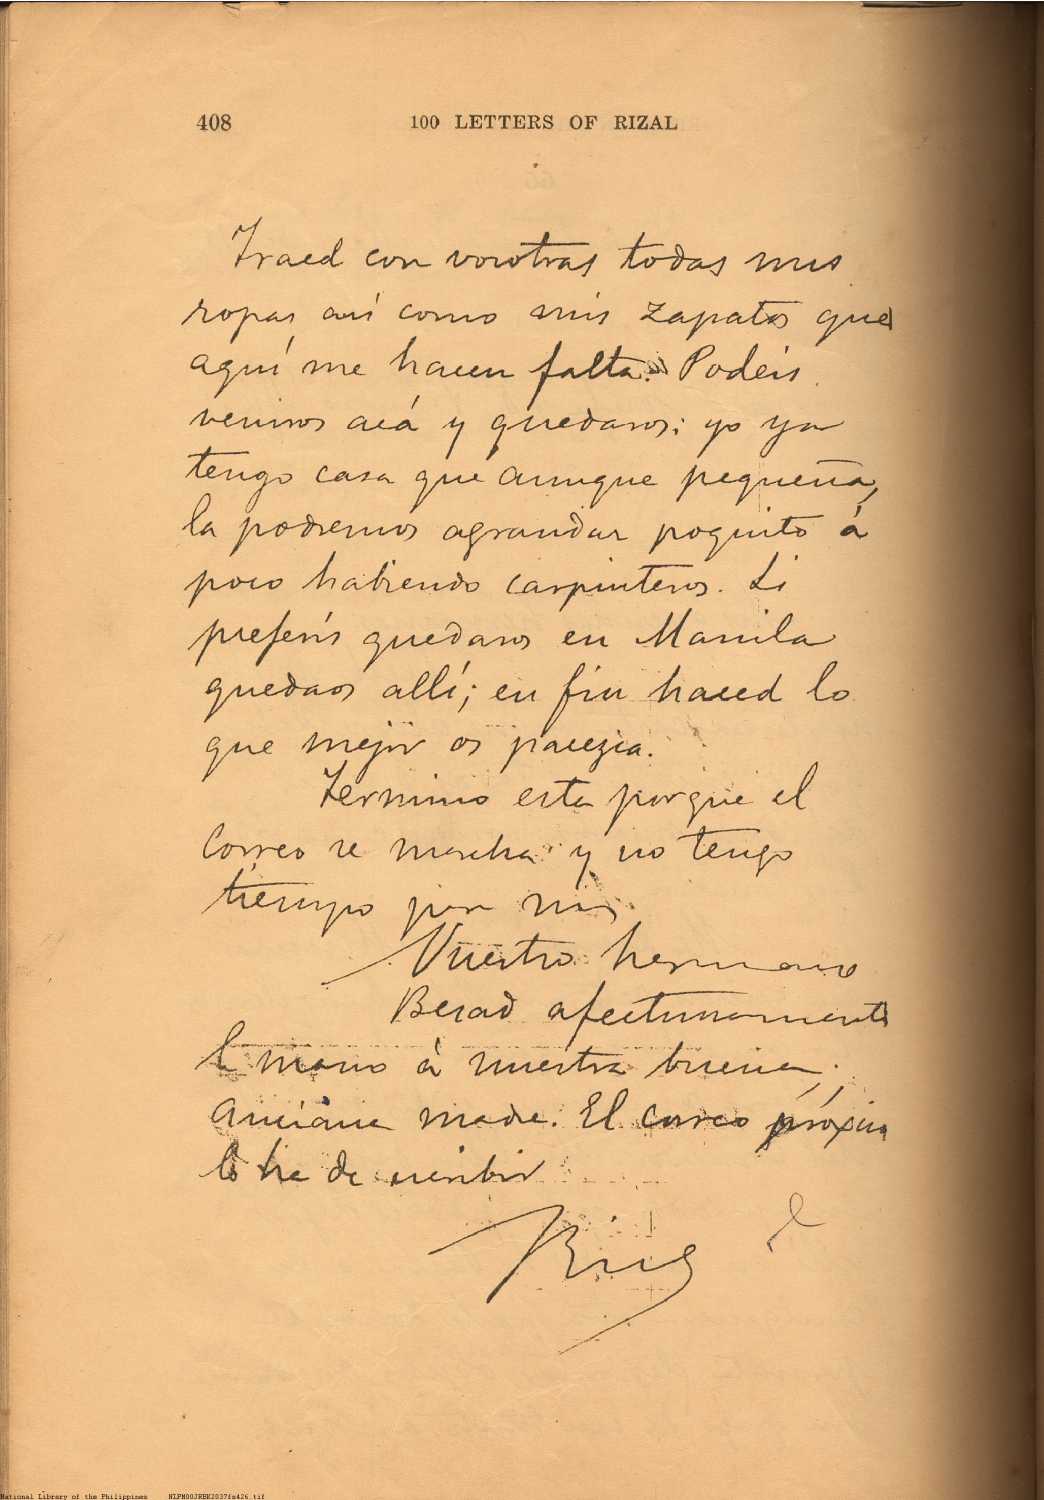 408 100 LETTERS OF RIZAL
Traed con vosotras todas mis
ropas así como mis zapatos que
aquí me hacen falta. Podéis
veniros acá y quedaros; yo ya
tengo casa que aunque pequeña,
la podremos agrandar poquito á
poco habiendo carpinteros. Si
preferís quedaros en Manila
quedaos allí; en fin haced lo
que mejor os parezca.
Termino esta porque el
correo se marcha y no tengo
tiempo por más.
Vuestro hermano
Besad afectuosamente
la mano á nuestra buena,
anciana madre. El correo próximo
le he de escribir
Rizal
National Library of the Philippines NLPM00JRBK2037fs426.tif